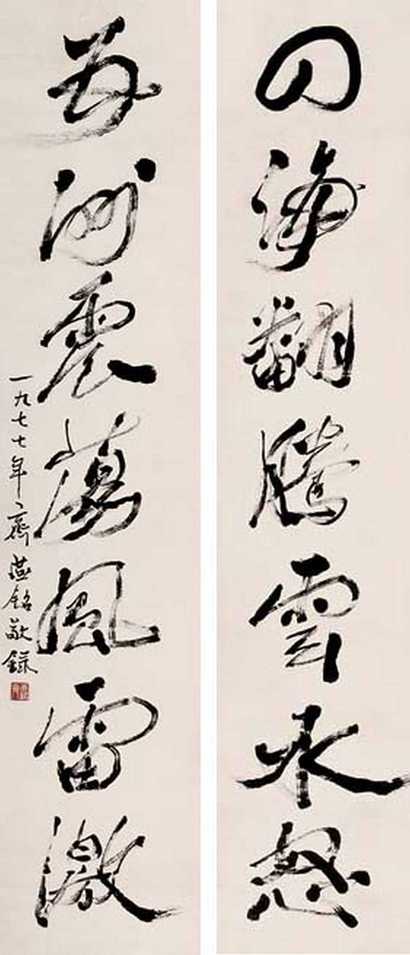 四海翻騰雲水怒
五洲震蕩風雷激
一九七七年齊燕銘敬錄